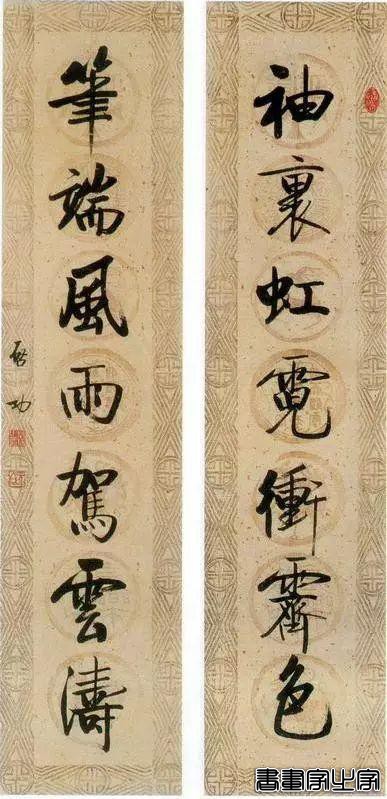 袖裏虹霓衝霽色
筆端風雨駕雲濤
啟功
書畫家之家